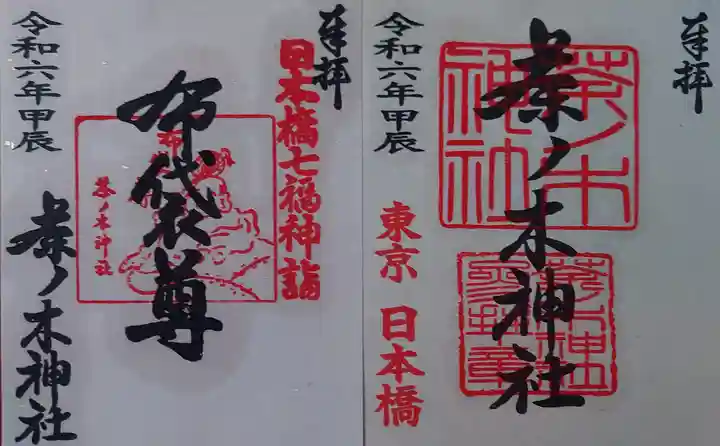 奉拝
茶ノ木神社
茶ノ木神社
東京 日本橋
令和六年甲辰
奉拝
日本橋七福神詣
布袋尊
茶ノ木神社
令和六年甲辰
茶ノ木神社